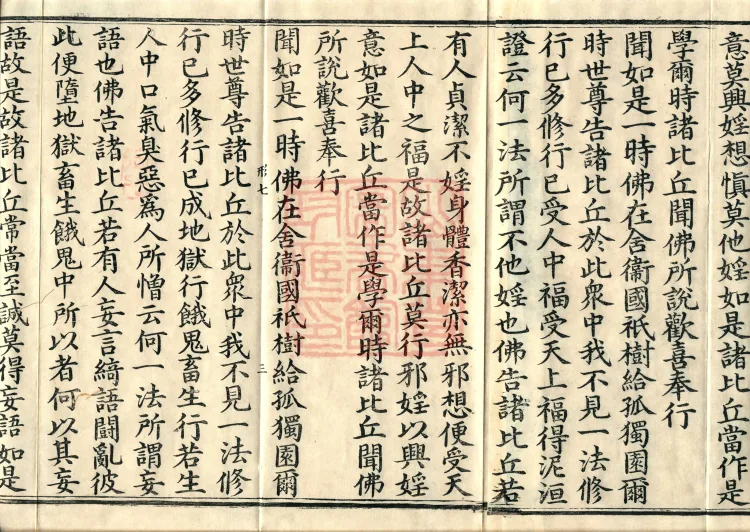 意莫興婬想慎莫他婬如是諸比丘當作是
學爾時諸比丘聞佛所說歡喜奉行
聞如是一時佛在舍衞國祇樹給孤獨園爾
時世尊告諸比丘於此衆中我不見一法修
行已多修行已受人中福受天上福得泥洹
證云何一法所謂不他婬也佛告諸比丘若
有人貞潔不婬身體香潔亦無邪想便受天
上人中之福是故諸比丘莫行邪婬以興婬
意如是諸比丘當作是學爾時諸比丘聞佛
所說歡喜奉行
形七
三
聞如是一時佛在舍衞國祇樹給孤獨園爾
時世尊告諸比丘於此衆中我不見一法修
行已多修行已成地獄行餓鬼畜生行若生
人中口氣臭惡爲人所憎云何一法所謂妄
語也佛告諸比丘若有人妄言綺語鬪亂彼
此便墮地獄畜生餓鬼中所以者何以其妄
語故是故諸比丘常當至誠莫得妄語如是